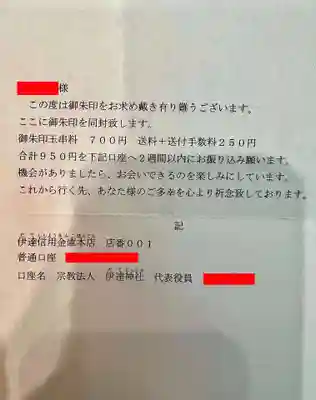 様
この度は御朱印をお求め戴き有り難うございます。
ここに御朱印を同封致します。
御朱印玉串料 ７００円 送料＋送付手数料２５０円
合計９５０円を下記口座へ２週間以内にお振り込み願います。
機会がありましたら、お会いできるのを楽しみにしています。
これから行く先、あなた様のご多幸を心より祈念致しております。
記
伊達信用金庫本店 店番００１
普通口座
口座名 宗教法人 伊達神社 代表役員